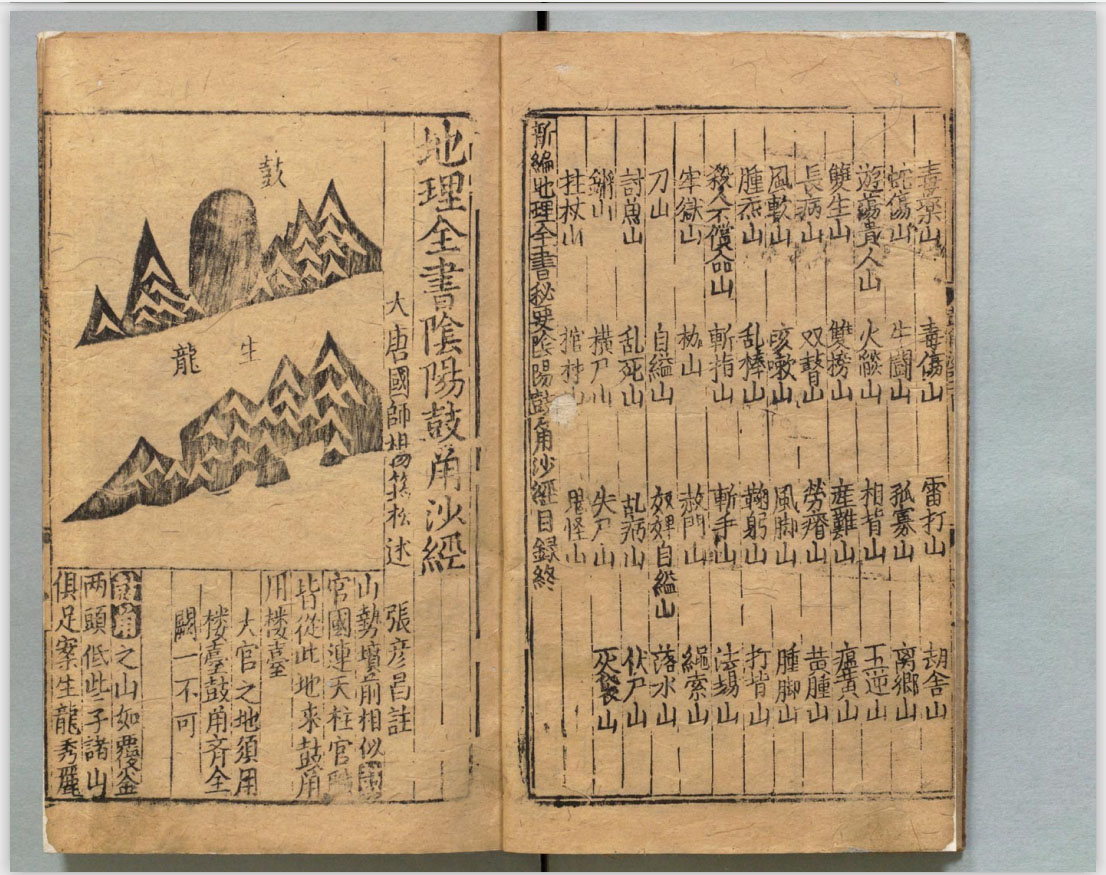 毒藥山 毒傷山 雷打山 舍山
蛇傷山 牛鬭山 孤寡山 离鄉山
遊蕩貴人山 火燄山 相背山 五逆山
雙生山 雙榜山 產難山 瘟黄山
長病山 双瞽山 勞瘵山 黄腫山
風軟山 咳嗽山 風脚山 腫脚山
腫炁山 乱棒山 鞠躬山 打背山
殺人不償命山 斬指山 斬手山 法塲山
牢獄山 枷山 赦門山 繩索山
刀山 自縊山 奴婢自縊山 落水山
討魚山 乱死山 乱病山 伏尸山
山 横尸山 失尸山 灰袋山
拄杖山 棺材山 鬼怪山
新編地理全書秘要陰陽鼓角沙經目録終
地理全書陰陽鼓角沙經
大唐國師楊筠松述
張彦昌註
鼓
生龍
山勢墳前相似
官國連天柱官
皆從此地来鼓角
用楼臺
大官之地須用
楼臺鼓角齐全
闕一不可
鼓角之山如覆釜
两頭低些子諸山
俱足案生龍秀麗